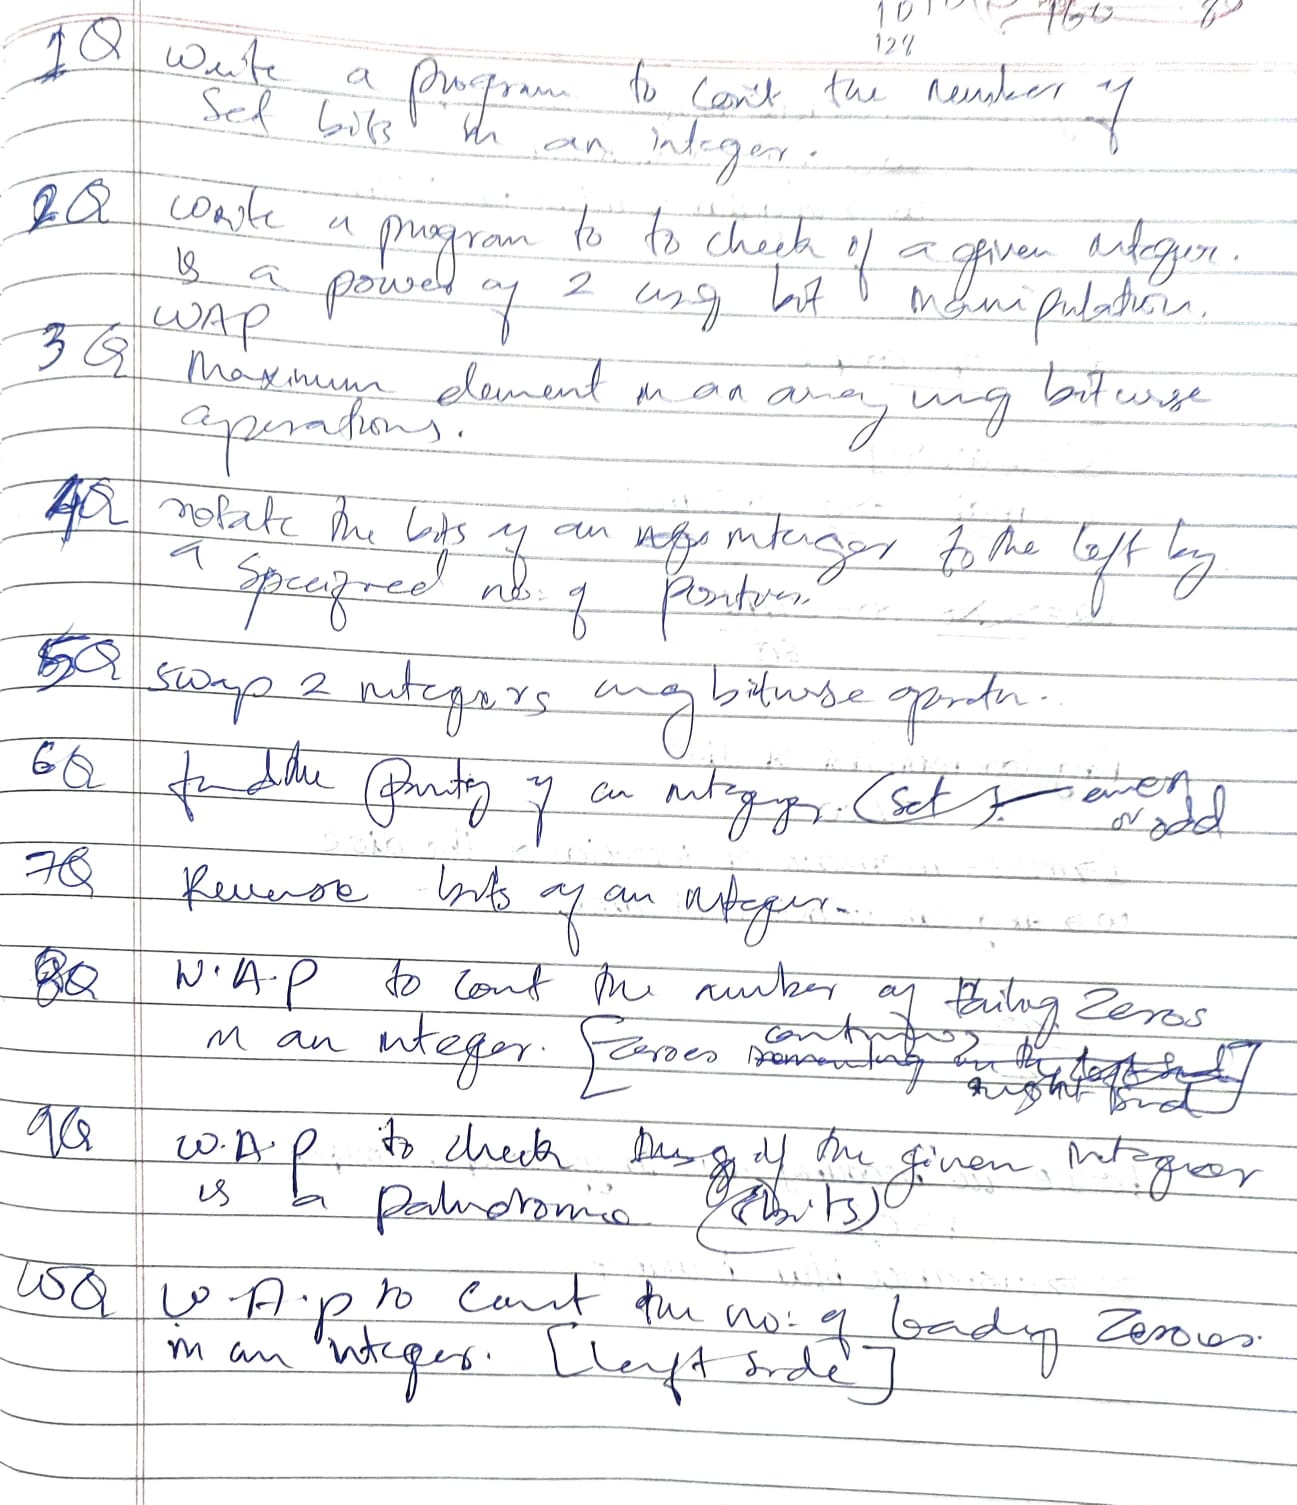 128
1Q Write a program to count the number of
Set bits in an integer.
2Q Write a program to to check if a given integer.
is a power of 2 using bit manipulation.
WAP
3Q Maximum element in an array using bitwise
operations.
4Q rotate the bits of an integer to the left by
a specified no. of positions.
5Q swap 2 integers using bitwise operator.
6Q find the parity of an integer. (set) even
or odd
7Q Reverse bits of an integer.
8Q W.A.P to count the number of trailing zeros
in an integer. [zeroes
right side]
9Q W.A.P. to check if the given integer
is a palindromic (bits)
10Q W.A.P to count the no: of leading zeroes.
in an integer. [left side]